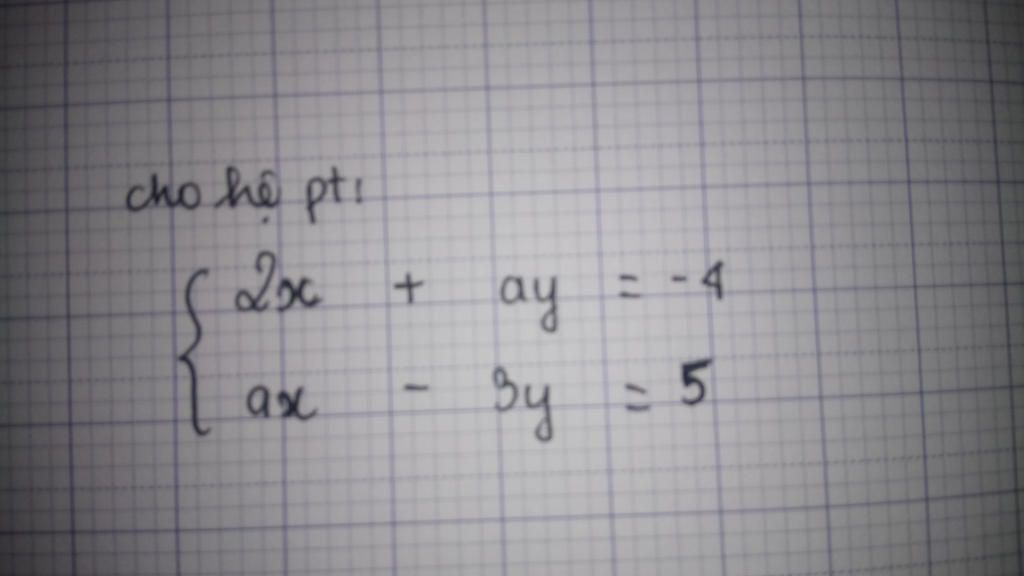 cho hệ pt:
2x + ay = -4
ax - 3y = 5